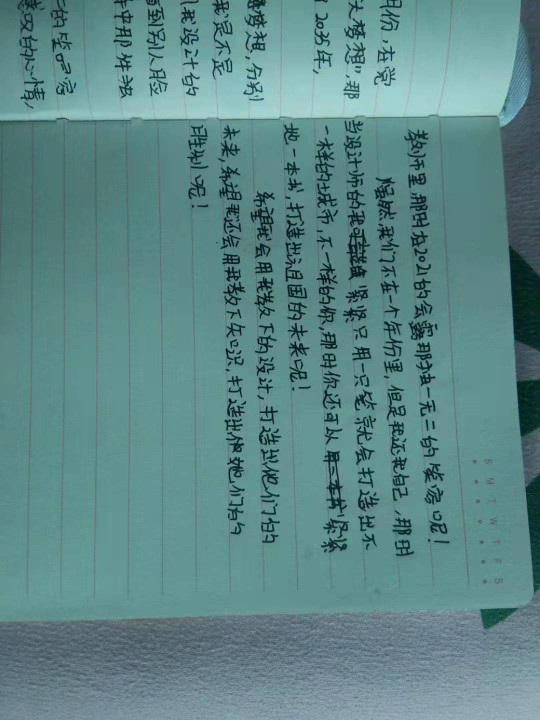 月份,在党
大梦想",那
2035年,
梦想,分别
我是不是
我设计的
到别人脸
中那件法
的笑容
的心情,
S M T W T F S
教师里,那时在2021的会露那独一无二的笑容呢!
虽然我们不在一个年份里,但是我还我自己,那时
当设计师的我紧紧只用一只笔就会打造出不
一样的城市,不一样的你,那时你还可以用一本书紧紧
地一本书,打造出祖国的未来呢!
希望我会用我教下的设计,打造出他们的
未来,希望我还会用我教下知识,打造出他她们的
胜利呢!